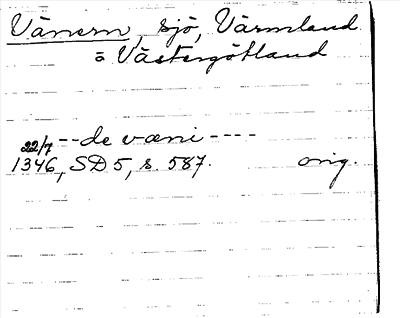 Vänern, sjö, Värmland
o Västergötland
22/7 -- de væni ----
1346, SD 5, s. 587. orig.